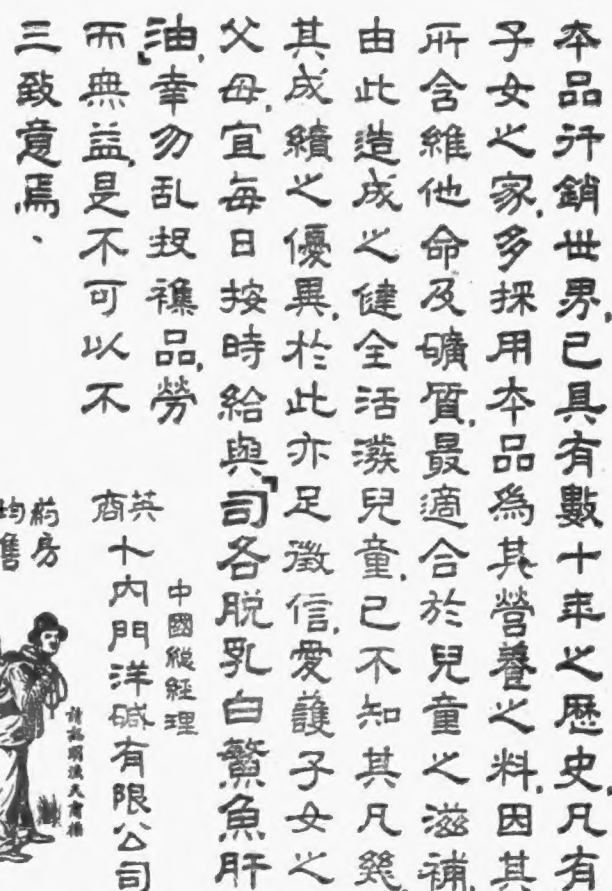 本品行銷世界,已具有數十年之歷史,凡有
子女之家,多採用本品爲其營養之料,因其
所含維他命及礦質,最適合於兒童之滋補,
由此造成之健全活潑兒童,已不知其凡幾,
其成績之優異,於此亦足徵信,愛護子女之
父母,宜每日按時給與「司各脱乳白鰵魚肝
油」,幸勿乱投襍品,勞
而無益,是不可以不
三致意焉、
中國總經理
英商
卜內門洋碱有限公司
葯房
均售
請認明漁夫商標